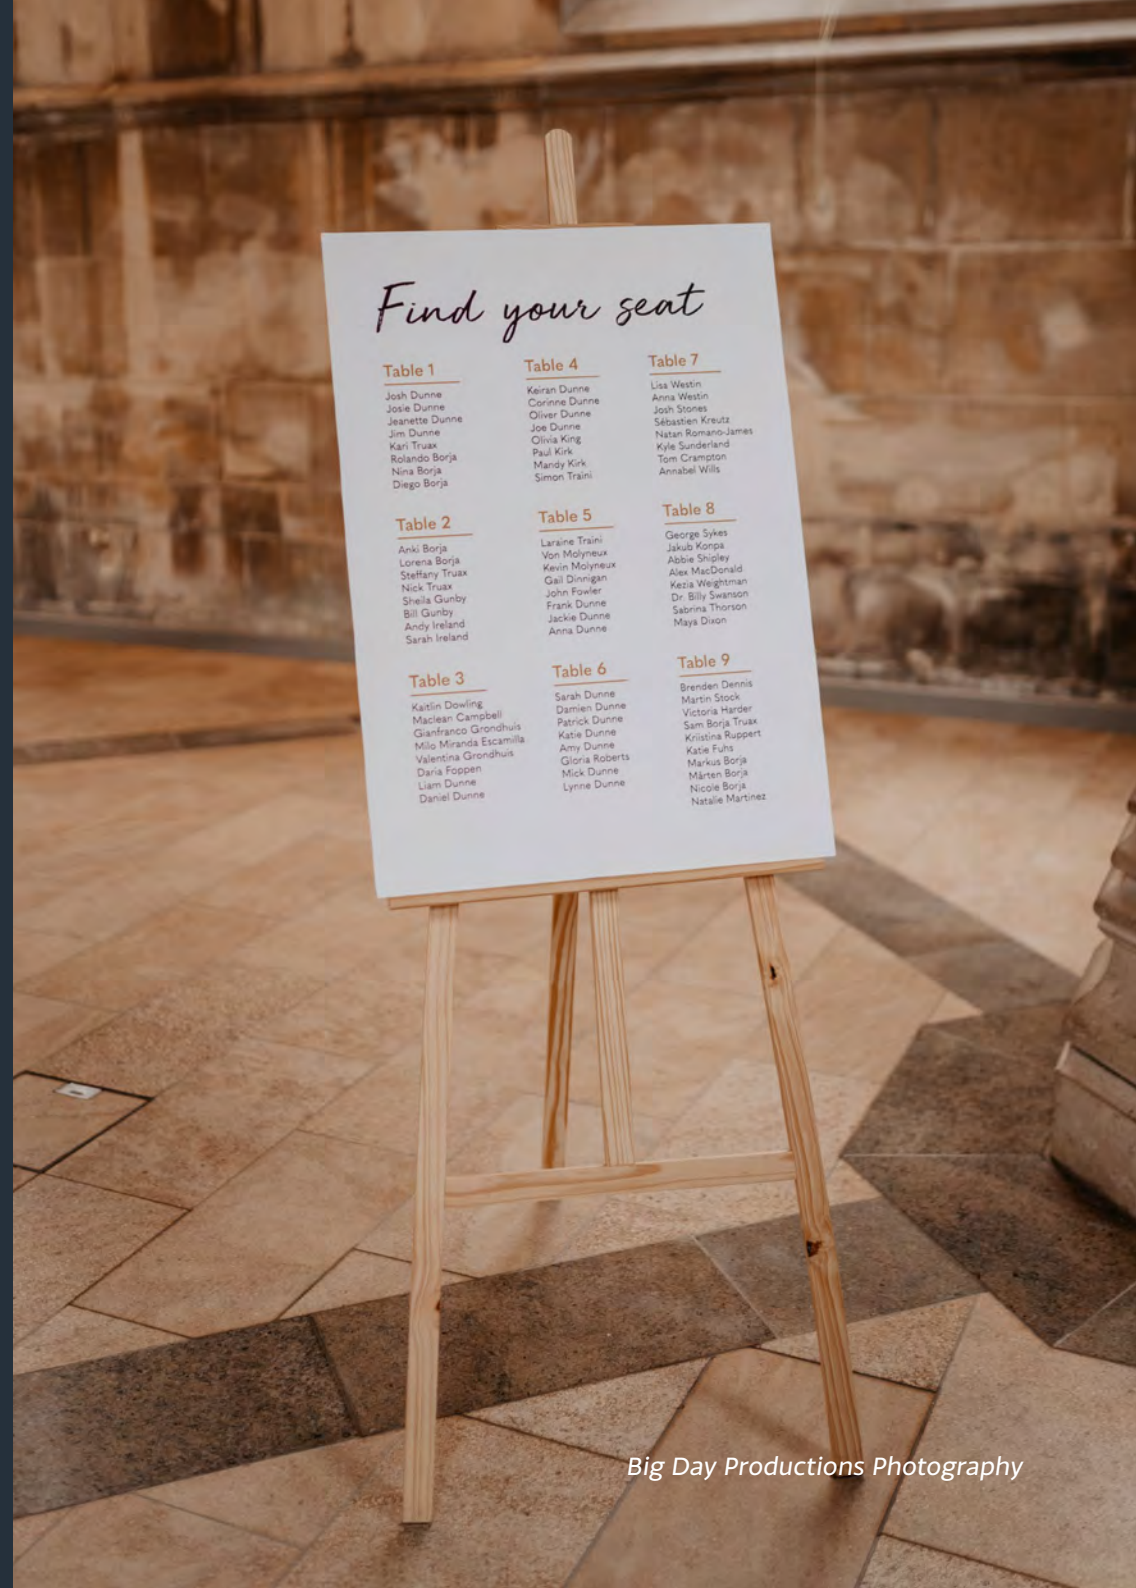 Find your seat
Table 1
Josh Dunne
Josie Dunne
Jeanette Dunne
Jim Dunne
Kari Truax
Rolando Borja
Nina Borja
Diego Borja
Table 2
Anki Borja
Lorena Borja
Steffany Truax
Nick Truax
Sheila Gunby
Bill Gunby
Andy Ireland
Sarah Ireland
Table 3
Kaitlin Dowling
Maclean Campbell
Gianfranco Grondhuis
Milo Miranda Escamilla
Valentina Grondhuis
Daria Foppen
Liam Dunne
Daniel Dunne
Table 4
Keiran Dunne
Corinne Dunne
Oliver Dunne
Joe Dunne
Olivia King
Paul Kirk
Mandy Kirk
Simon Traini
Table 5
Laraine Traini
Von Molyneux
Kevin Molyneux
Gail Dinnigan
John Fowler
Frank Dunne
Jackie Dunne
Anna Dunne
Table 6
Sarah Dunne
Damien Dunne
Patrick Dunne
Katie Dunne
Amy Dunne
Gloria Roberts
Mick Dunne
Lynne Dunne
Table 7
Lisa Westin
Anna Westin
Josh Stones
Sébastien Kreutz
Natan Romano-James
Kyle Sunderland
Tom Crampton
Annabel Wills
Table 8
George Sykes
Jakub Konpa
Abbie Shipley
Alex MacDonald
Kezia Weightman
Dr. Billy Swanson
Sabrina Thorson
Maya Dixon
Table 9
Brenden Dennis
Martin Stock
Victoria Harder
Sam Borja Truax
Kristina Ruppert
Katie Fuhs
Markus Borja
Mårten Borja
Nicole Borja
Natalie Martinez
Big Day Productions Photography